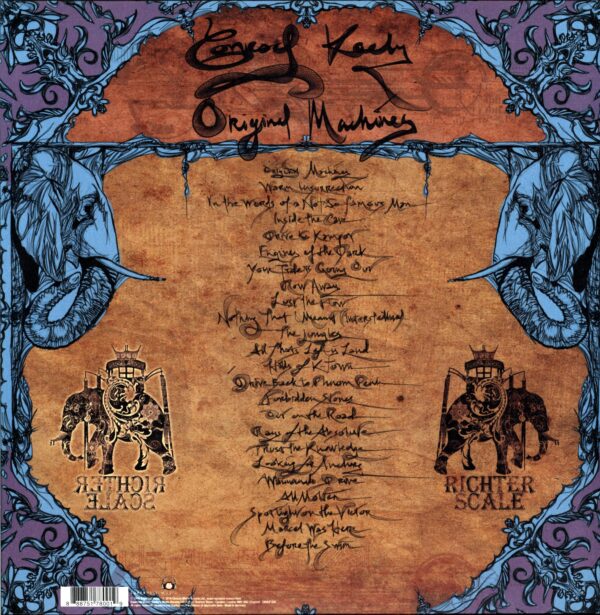 Conrad Keely
Original Machines
Original Machines
Warm Insurrection
In the Words of a Not So Famous Man
Inside the Cave
Drive to Kampot
Engines of the Dark
Your Tide is Going Out
Row Away
Lost the Flow
Nothing That I Meant (Interstellar)
The Jungles
All That's Left is Land
Hills of K-Town
Drive Back to Phnom Penh
Forbidden Stones
Out on the Road
Rays of the Absolute
Trust the Knowledge
Looking for Anchors
Warm and Dry
All Molten
Spotlight on the Victor
Marcel Was Here
Before the Swim
RICHTER
SCALE
RICHTER
SCALE